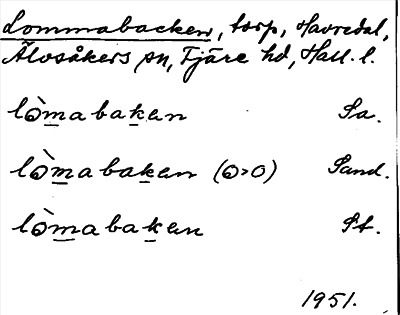 Lommabacken, torp, Havredal,
Älvsåkers sn, Fjäre hd, Hall. l.
lòmabaken Sa.
lòmabaken (ɷ>o) Sand.
lòmabaken St.
1951.